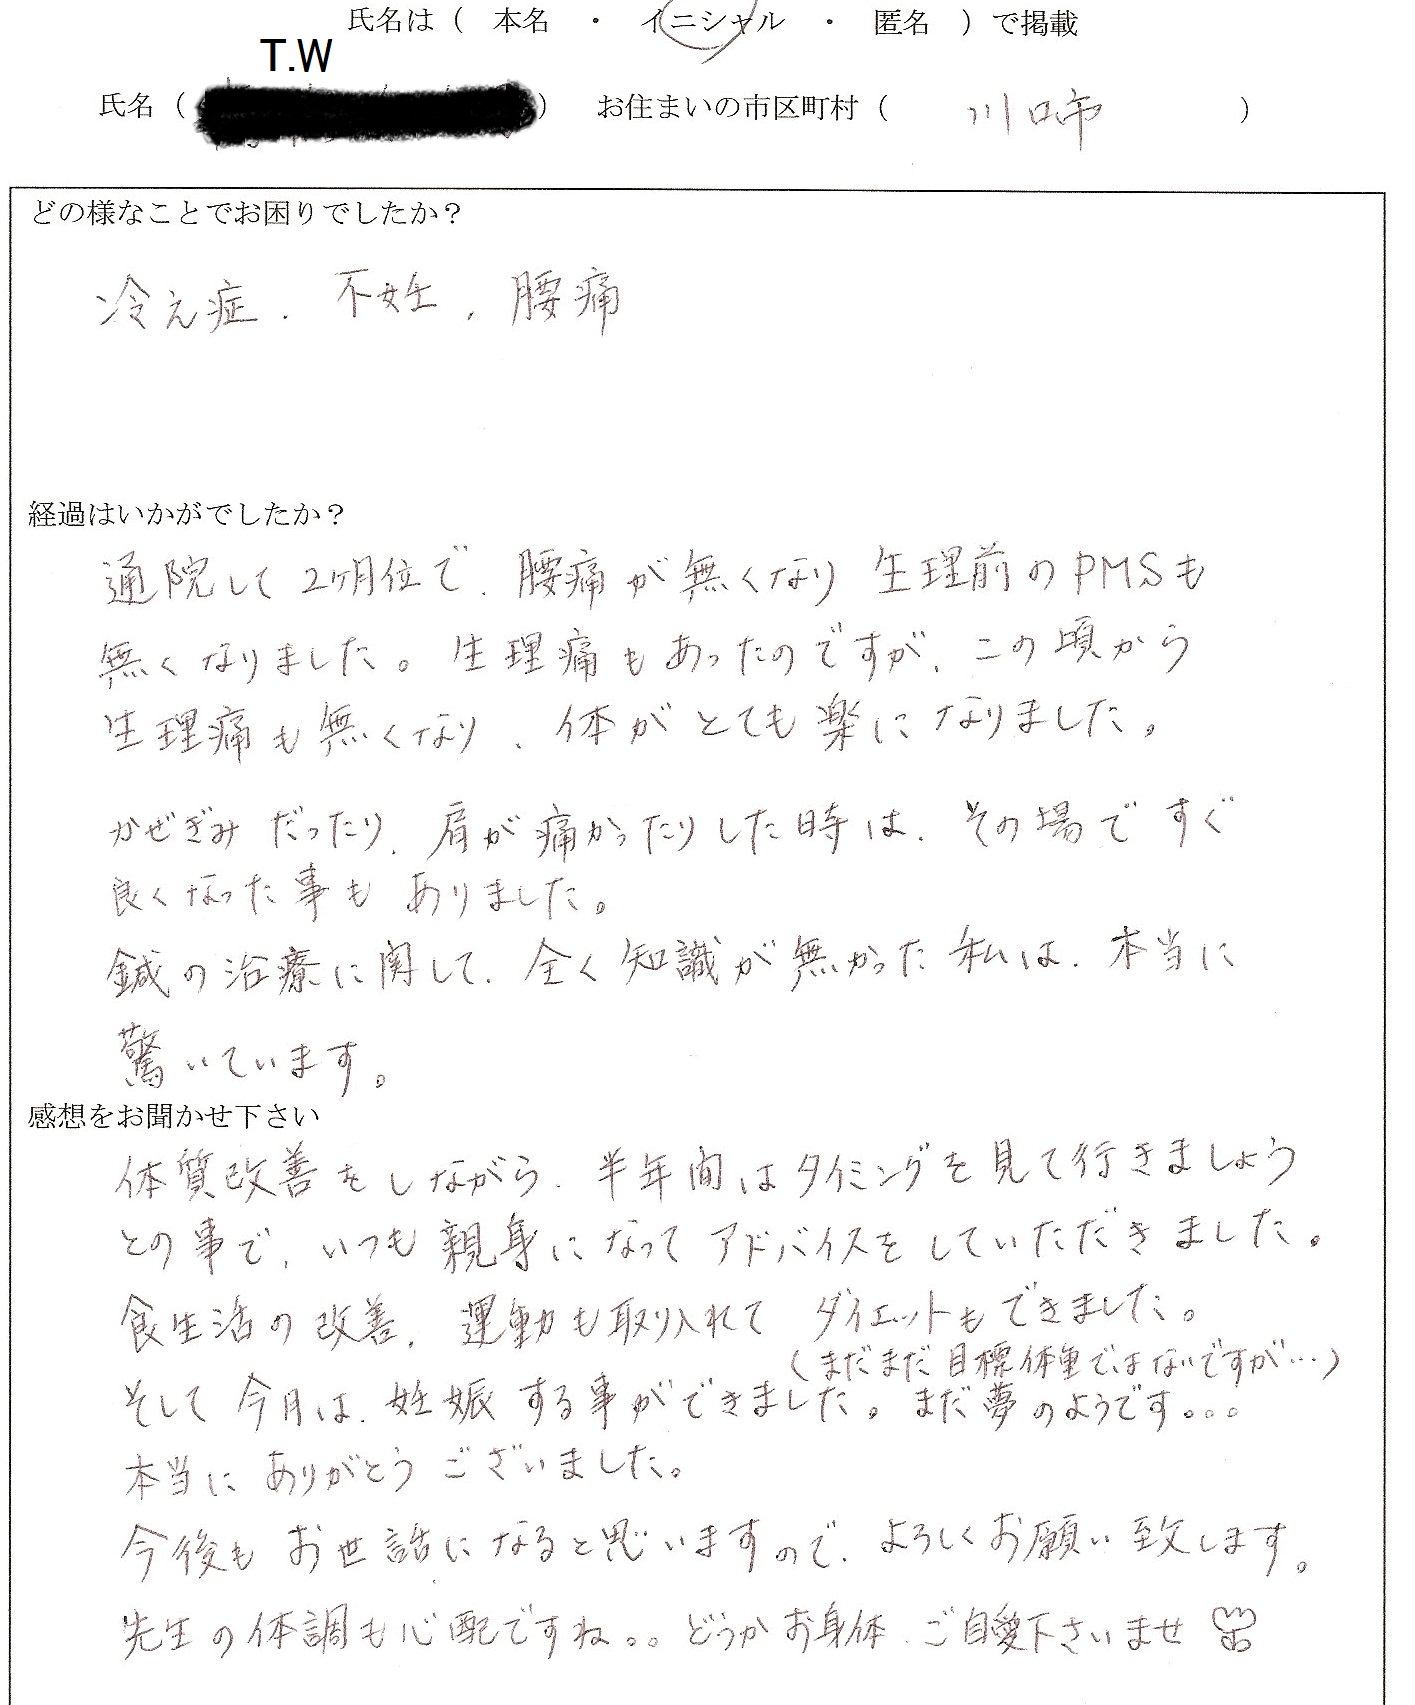 氏名は（ 本名 ・ イニシャル ・ 匿名 ）で掲載
T.W
氏名（ ） お住まいの市区町村（ 川口市 ）
どの様なことでお困りでしたか？
冷え症、不妊、腰痛
経過はいかがでしたか？
通院して2ヶ月位で、腰痛が無くなり生理前のPMSも
無くなりました。生理痛もあったのですが、この頃から
生理痛も無くなり、体がとても楽になりました。
かぜぎみだったり、肩が痛かったりした時は、その場ですぐ
良くなった事もありました。
鍼の治療に関して、全く知識が無かった私は、本当に
驚いています。
感想をお聞かせ下さい
体質改善をしながら、半年間はタイミングを見て行きましょう
との事で、いつも親身になってアドバイスをしていただきました。
食生活の改善、運動も取り入れてダイエットもできました。
（まだまだ目標体重ではないですが…）
そして今月は、妊娠する事ができました。まだ夢のようです。。。
本当にありがとうございました。
今後もお世話になると思いますので、よろしくお願い致します。
先生の体調も心配ですね。。どうかお身体、ご自愛下さいませ